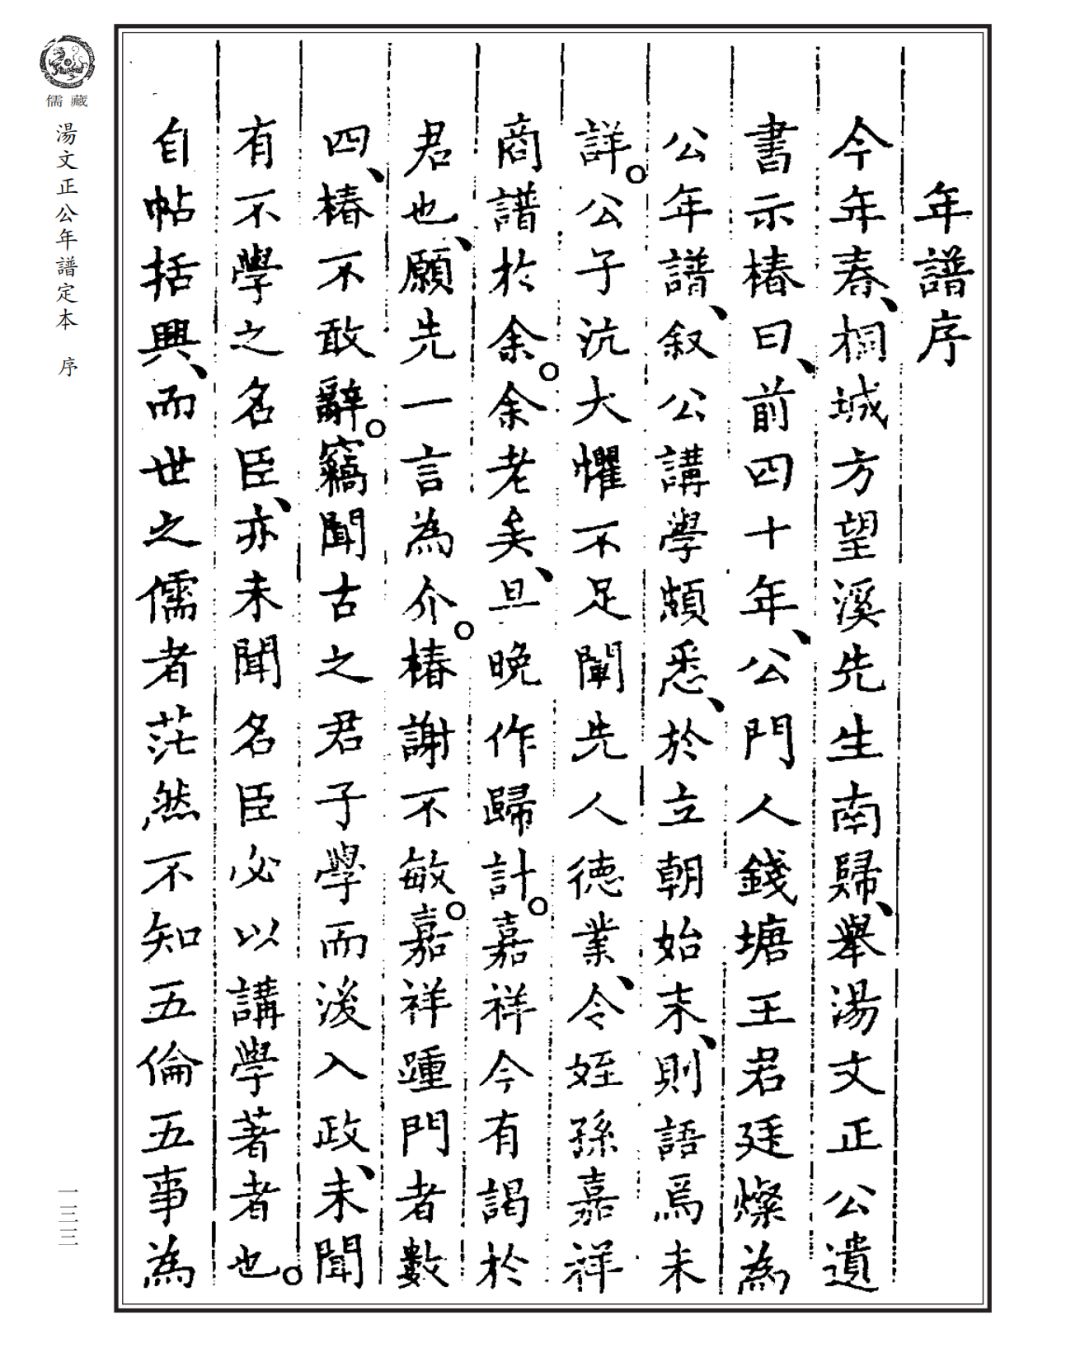 年譜序
今年春、桐城方望溪先生南歸、舉湯文正公遺
書示椿曰、前四十年、公門人錢塘王君廷燦為
公年譜、叙公講學頗悉、於立朝始末、則語焉未
詳。公子沆大懼不足闡先人德業、令姪孫嘉祥
商譜於余。余老矣、旦晚作歸計。嘉祥今有謁於
君也、願先一言為介。椿謝不敏。嘉祥踵門者數
四、椿不敢辭。竊聞古之君子學而後入政、未聞
有不學之名臣、亦未聞名臣必以講學著者也。
自帖括興、而世之儒者茫然不知五倫五事為
儒藏
湯文正公年譜定本 序
一三三